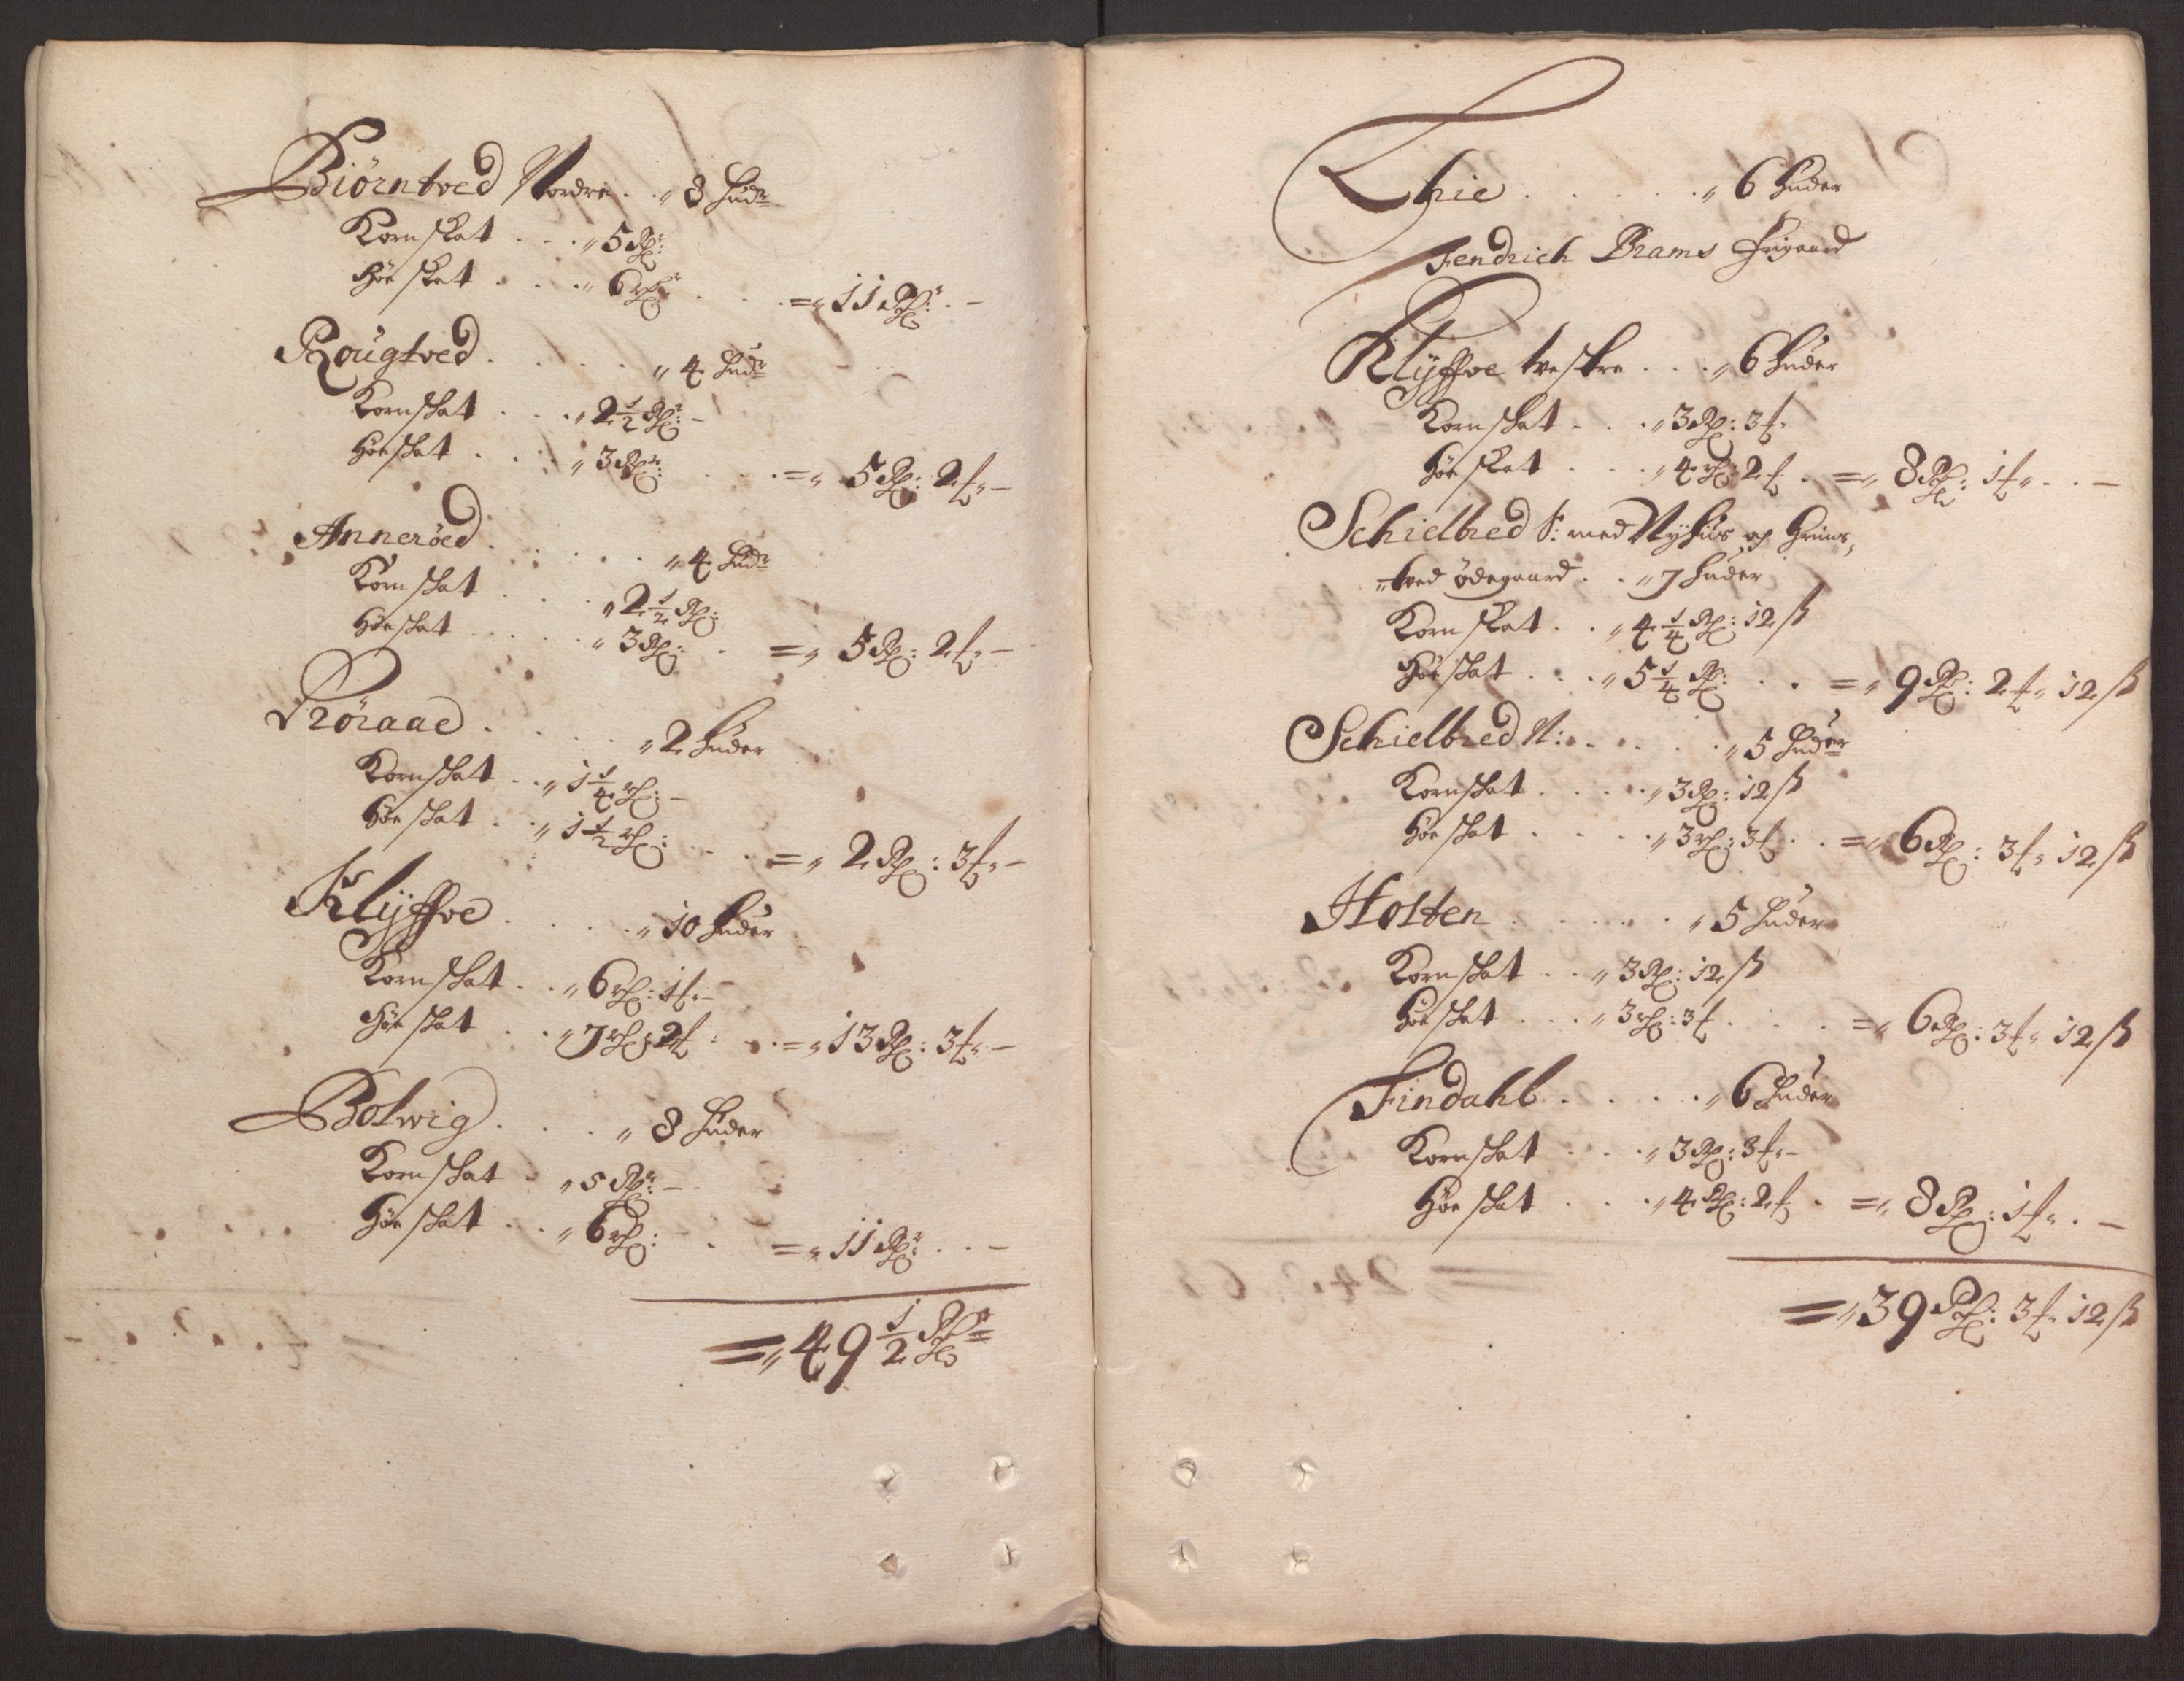 Biörntved Nordre . . „ 8 hudr
Kornskat . . . „ 5 Rdr:
Höe skat . . . „ 6 rdr . . . = „ 11 Rdr: . –
Rougtved . . . . . „ 4 hudr
Kornschat . . . „ 2 1/2 Rdr: –
Höeschat . . . „ 3 Rdr: . . . = „ 5 Rd: 2 f „ –
Anneröed . . . . . „ 4 hudr
Kornschat . . . „ 2 1/2 Rd:
Höeschat . . . . . „ 3 Rd: . = „ 5 Rd: 2 f „ –
Pröraae . . . . „ 2 huder
Kornschat . . „ 1 1/4 rd: –
Höe schat . . „ 1 1/2 rd: . . . = „ 2 Rd: 3 f „ –
Klÿffve . . . . . „ 10 huder
Kornschat . . „ 6 rd: 1 f „ –
Höe skat . . „ 7 rd: 2 f : . . = „ 13 Rd: 3 f „ –
Bolwig . . . . „ 8 huder
Kornschat . „ 5 Rdr: –
Höe schat . . „ 6 rd: . . = „ 11 Rdr: . . –
= „ 49 1/2 Rdr
Lhie . . . . . . „ 6 huder
Fendrich Brams frigaard
Klÿffve vestre . . . „ 6 huder
Kornschat . . . „ 3 Rd: 3 f „
Höe skat . . . „ 4 rd: 2 f . = „ 8 Rd: 1 f „ . . –
Schielbred S: med Nyhus og Grims,
„tved ödegaard . . „ 7 huder
Kornskat . . „ 4 1/4 Rd: 12 ß
Höe schat . . . „ 5 1/4 Rd: . . = „ 9 Rd: 2 f „ 12 ß
Schielbred N: . . . . . „ 5 huder
Kornschat . . . . . „ 3 Rd: 12 ß
Höe schat . . . . „ 3 rd: 3 f . . = „ 6 Rd: 3 f „ 12 ß
Holten . . . . . . „ 5 huder
Kornschat . . „ 3 Rd: 12 ß
Höe schat . . . „ 3 rd: 3 f . . . . = „ 6 Rd: 3 f „ 12 ß
Findahl . . . . . „ 6 huder
Kornschat . . . „ 3 Rd: 3 f „ –
Höe skat . . . „ 4 Rd: 2 f . = „ 8 Rd: 1 f „ . –
= „ 39 Rd: 3 f „ 12 ß